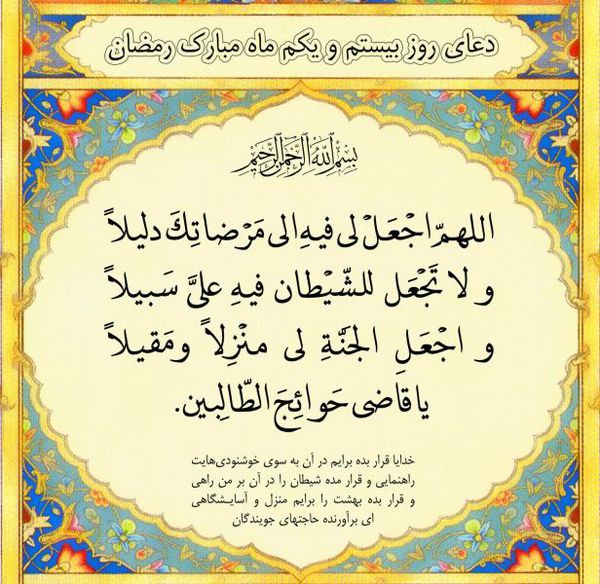 دعای روز بیستم و یکم ماه مبارک رمضان
بسم الله الرحمن الرحیم
اللهمّ اجْعَلْ لی فیهِ الی مَرْضاتِكَ دلیلاً
و لا تَجْعَل للشّیْطان فیهِ علیَّ سَبیلاً
و اجْعَلِ الجَنّةِ لی منْزِلاً ومَقیلاً
یا قاضی حَوائِجَ الطّالِبین.
خدایا قرار بده برایم در آن به سوی خوشنودی‌هایت
راهنمایی و قرار مده شیطان را در آن بر من راهی
و قرار بده بهشت را برایم منزل و آسایشگاهی
ای برآورنده حاجتهای جویندگان